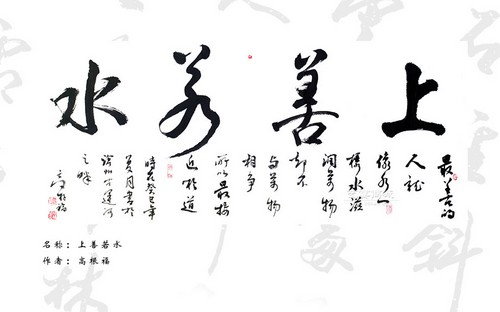 上善若水
最善的
人就
像水一
樣水滋
潤万物
却不
与万物
相争
所以最接
近於道
時在癸巳年
夏月書於
滄州大運河
之畔
高根福
名称：上善若水
作者：高根福